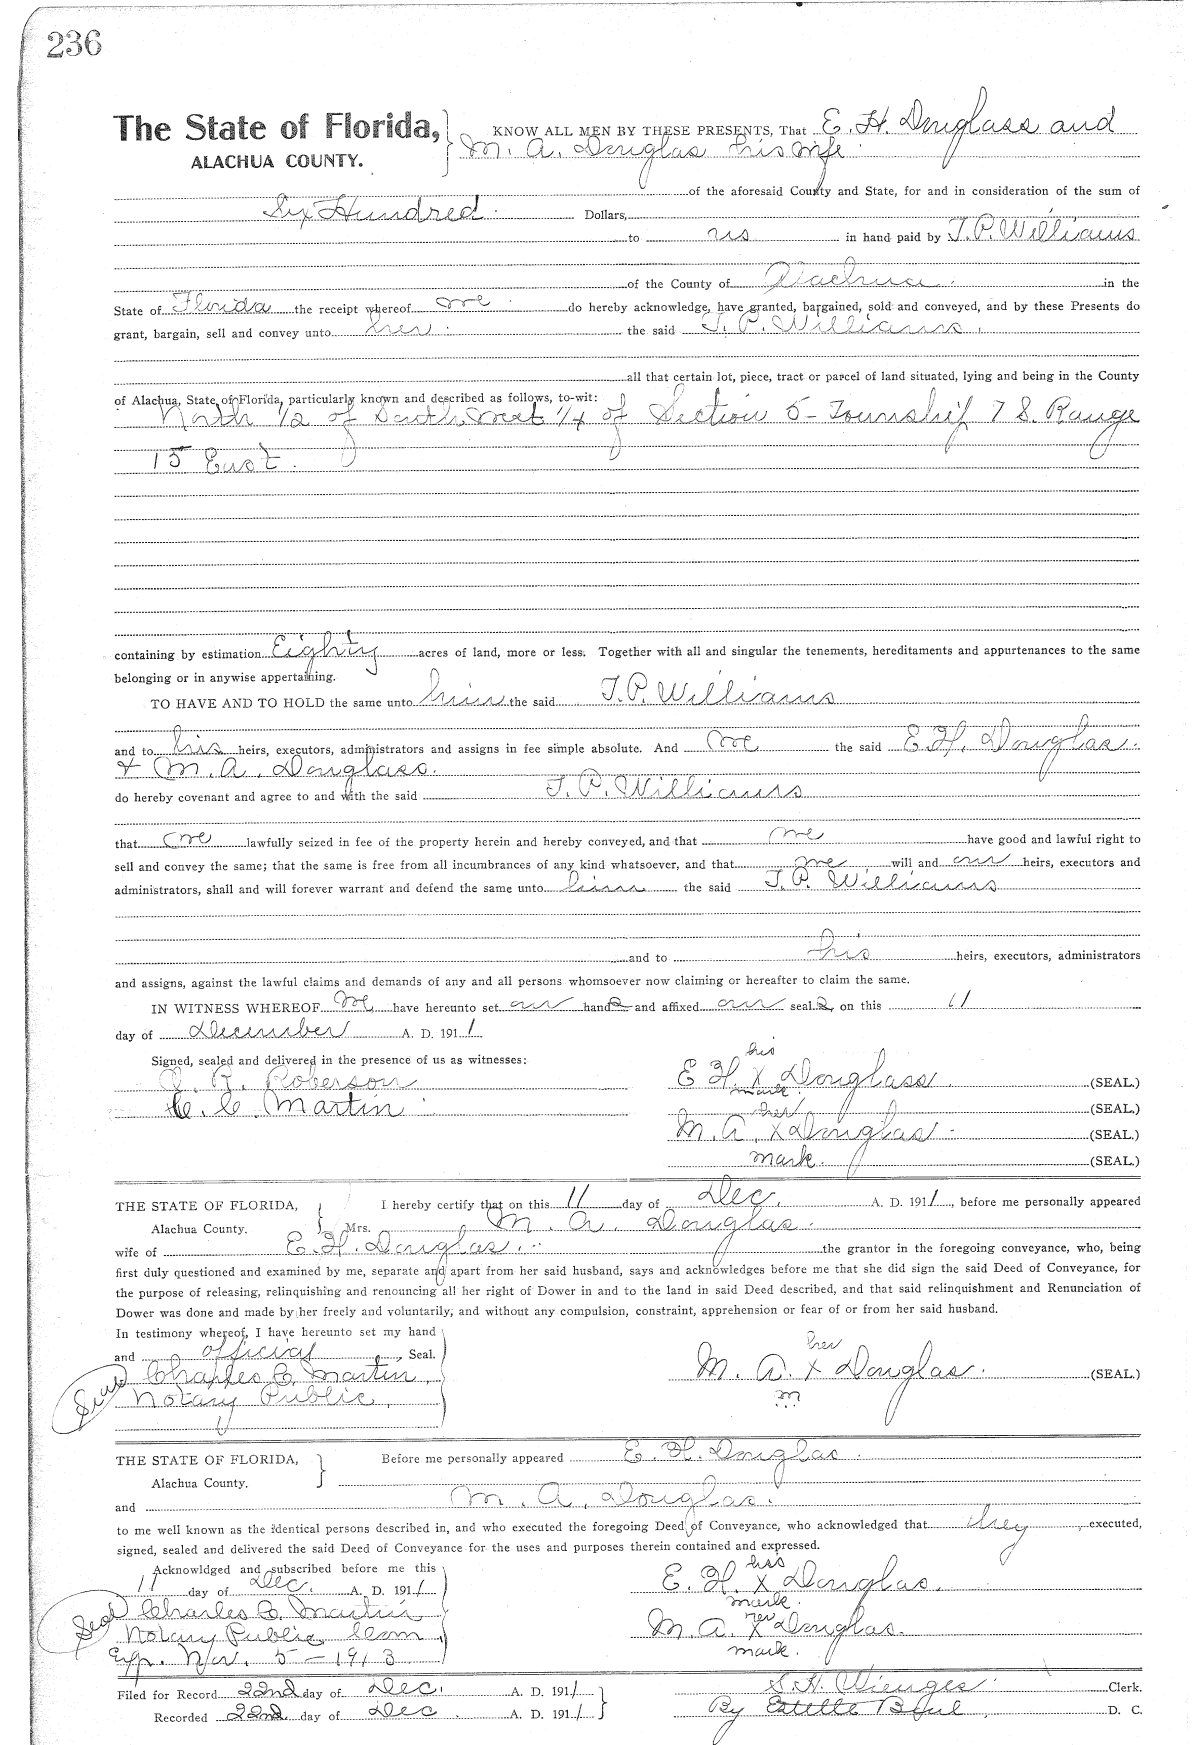 236
The State of Florida, KNOW ALL MEN BY THESE PRESENTS, That E. H. Douglass and
ALACHUA COUNTY. M. A. Douglas his wife
of the aforesaid County and State, for and in consideration of the sum of
Six Hundred Dollars,
to us in hand paid by T. P. Williams
of the County of Alachua in the
State of Florida the receipt whereof we do hereby acknowledge, have granted, bargained, sold and conveyed, and by these Presents do
grant, bargain, sell and convey unto her the said T. P. Williams.
all that certain lot, piece, tract or parcel of land situated, lying and being in the County
of Alachua, State of Florida, particularly known and described as follows, to-wit:
North 1/2 of South West 1/4 of Section 5 - Township 7 S. Range
15 East.
containing by estimation Eighty acres of land, more or less. Together with all and singular the tenements, hereditaments and appurtenances to the same
belonging or in anywise appertaining.
TO HAVE AND TO HOLD the same unto him the said T. P. Williams
and to his heirs, executors, administrators and assigns in fee simple absolute. And we the said E. H. Douglas.
& M. A. Douglass.
do hereby covenant and agree to and with the said T. P. Williams
that we lawfully seized in fee of the property herein and hereby conveyed, and that we have good and lawful right to
sell and convey the same; that the same is free from all incumbrances of any kind whatsoever, and that we will and our heirs, executors and
administrators, shall and will forever warrant and defend the same unto him the said T. P. Williams
and to his heirs, executors, administrators
and assigns, against the lawful claims and demands of any and all persons whomsoever now claiming or hereafter to claim the same.
IN WITNESS WHEREOF We have hereunto set our hands and affixed our seals, on this 11
day of December A. D. 1911
Signed, sealed and delivered in the presence of us as witnesses: his
R. Roberson E H. X Douglass (SEAL.)
C. C. Martin mark. (SEAL.)
her
M. A. X Douglas (SEAL.)
mark. (SEAL.)
THE STATE OF FLORIDA, I hereby certify that on this 11 day of Dec. A. D. 1911, before me personally appeared
Alachua County. Mrs. M. A. Douglas
wife of E. H. Douglas. the grantor in the foregoing conveyance, who, being
first duly questioned and examined by me, separate and apart from her said husband, says and acknowledges before me that she did sign the said Deed of Conveyance, for
the purpose of releasing, relinquishing and renouncing all her right of Dower in and to the land in said Deed described, and that said relinquishment and Renunciation of
Dower was done and made by her freely and voluntarily; and without any compulsion, constraint, apprehension or fear of or from her said husband.
In testimony whereof, I have hereunto set my hand
and official, Seal. her
Seal Charles C. Martin, M. A. X Douglas. (SEAL.)
Notary Public, m
THE STATE OF FLORIDA, Before me personally appeared E. H. Douglas
Alachua County.
and M. A. Douglas.
to me well known as the identical persons described in, and who executed the foregoing Deed of Conveyance, who acknowledged that they executed,
signed, sealed and delivered the said Deed of Conveyance for the uses and purposes therein contained and expressed.
Acknowlidged and subscribed before me this his
11 day of Dec. A. D. 1911 E. H. X Douglas.
Seal Charles C. Martin mark.
her
Notary Public Com M. A. X Douglas.
Exp. Nov. 5 - 1913 mark.
Filed for Record 22nd day of Dec. A. D. 1911 S. H. Wienges Clerk.
Recorded 22nd day of Dec. A. D. 1911 By Estelle D. C.